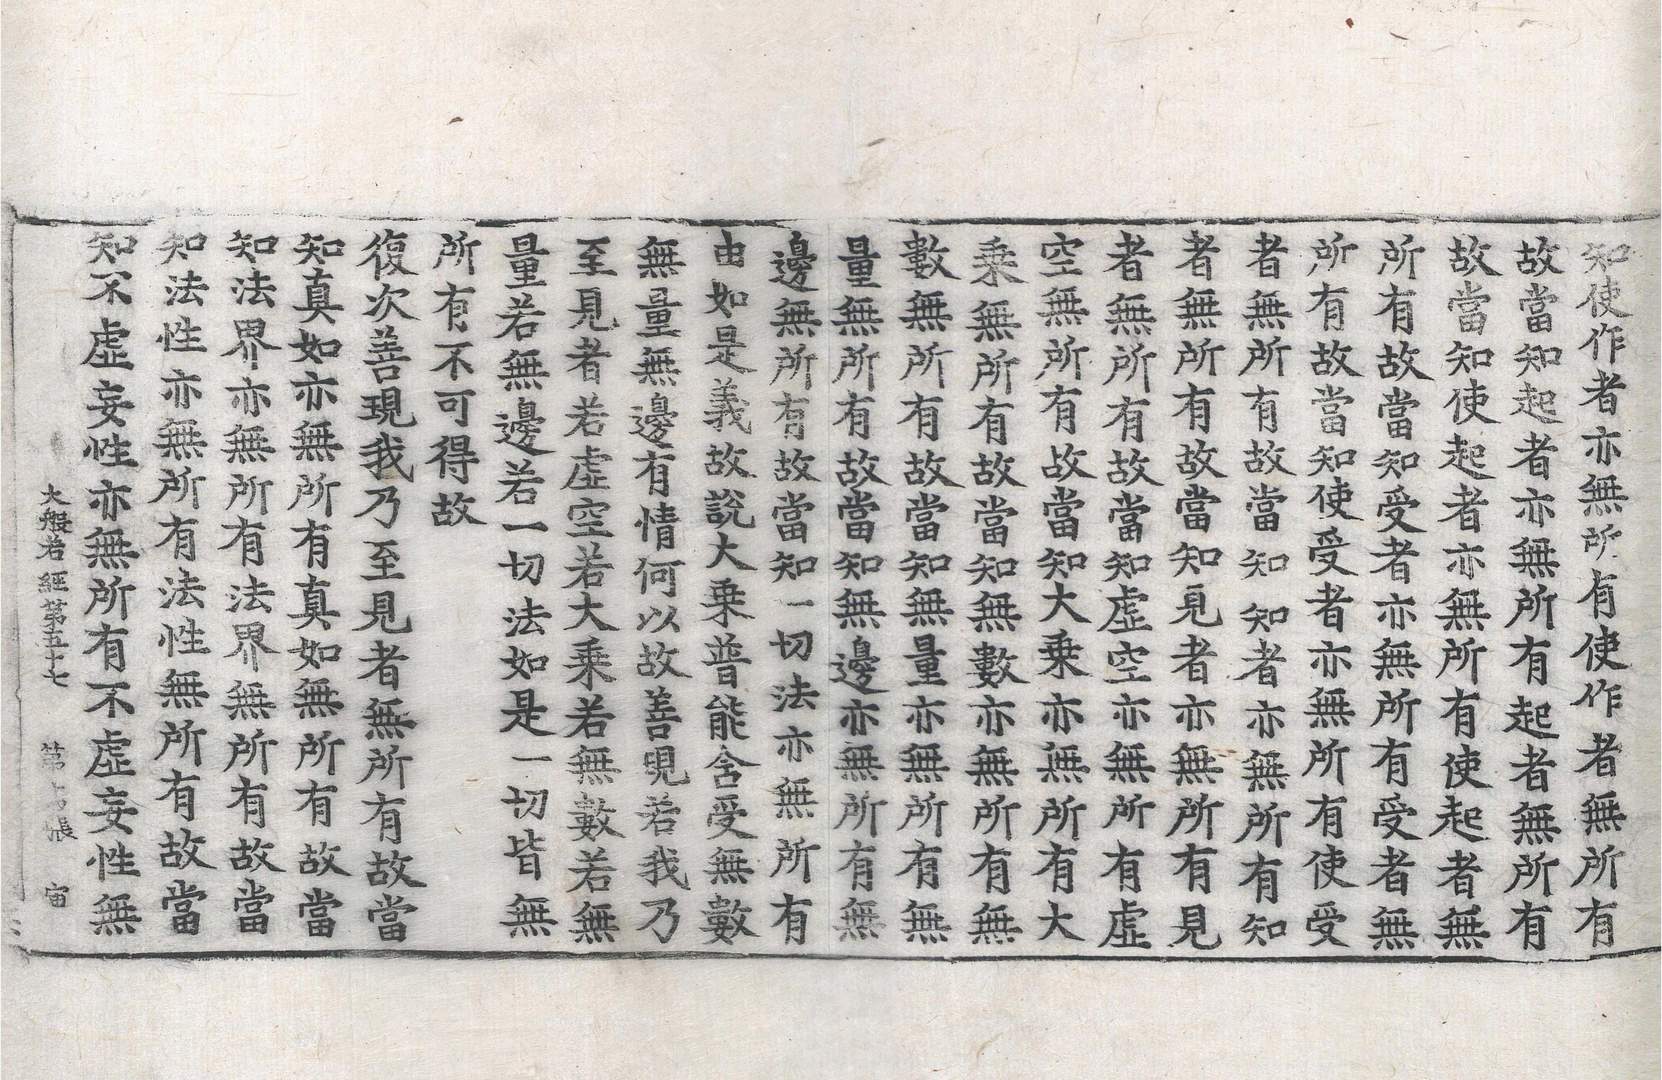 知使作者亦無所有使作者無所有
故當知起者亦無所有起者無所有
故當知使起者亦無所有使起者無
所有故當知受者亦無所有受者無
所有故當知使受者亦無所有使受
者無所有故當知知者亦無所有知
者無所有故當知見者亦無所有見
者無所有故當知虛空亦無所有虛
空無所有故當知大乗亦無所有大
乗無所有故當知無數亦無所有無
數無所有故當知無量亦無所有無
量無所有故當知無邊亦無所有無
邊無所有故當知一切法亦無所有
由如是義故說大乗普能含受無數
無量無邊有情何以故善現若我乃
至見者若虛空若大乗若無數若無
量若無邊若一切法如是一切皆無
所有不可得故
復次善現我乃至見者無所有故當
知真如亦無所有真如無所有故當
知法界亦無所有法界無所有故當
知法性亦無所有法性無所有故當
知不虛妄性亦無所有不虛妄性無
大般若經第五十七 第 張 宙